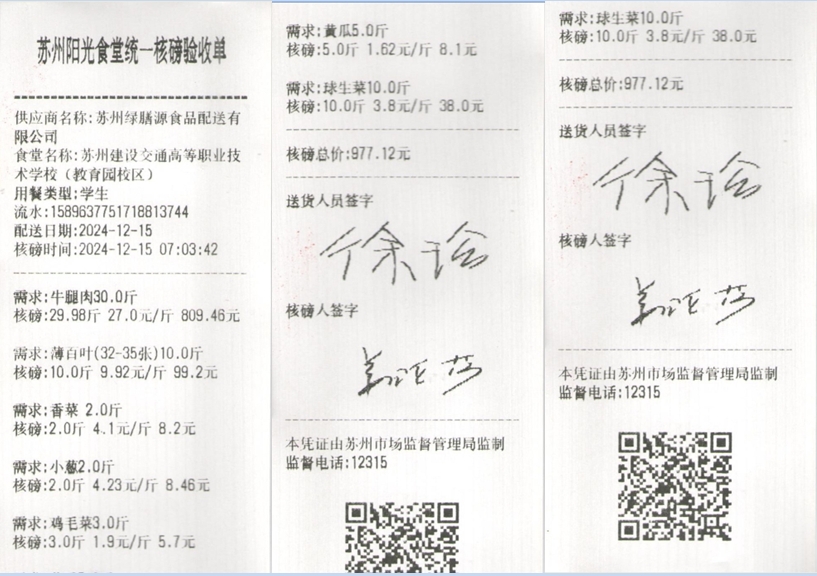 苏州阳光食堂统一核磅验收单
供应商名称:苏州绿膳源食品配送有
限公司
食堂名称:苏州建设交通高等职业技
术学校（教育园校区）
用餐类型:学生
流水:1589637751718813744
配送日期:2024-12-15
核磅时间:2024-12-15 07:03:42
需求:牛腿肉30.0斤
核磅:29.98斤 27.0元/斤 809.46元
需求:薄百叶(32-35张)10.0斤
核磅:10.0斤 9.92元/斤 99.2元
需求:香菜 2.0斤
核磅:2.0斤 4.1元/斤 8.2元
需求:小葱2.0斤
核磅:2.0斤 4.23元/斤 8.46元
需求:鸡毛菜3.0斤
核磅:3.0斤 1.9元/斤 5.7元
需求:黄瓜5.0斤
核磅:5.0斤 1.62元/斤 8.1元
需求:球生菜10.0斤
核磅:10.0斤 3.8元/斤 38.0元
核磅总价:977.12元
送货人员签字
核磅人签字
本凭证由苏州市场监督管理局监制
监督电话:12315
需求:球生菜10.0斤
核磅:10.0斤 3.8元/斤 38.0元
核磅总价:977.12元
送货人员签字
核磅人签字
本凭证由苏州市场监督管理局监制
监督电话:12315